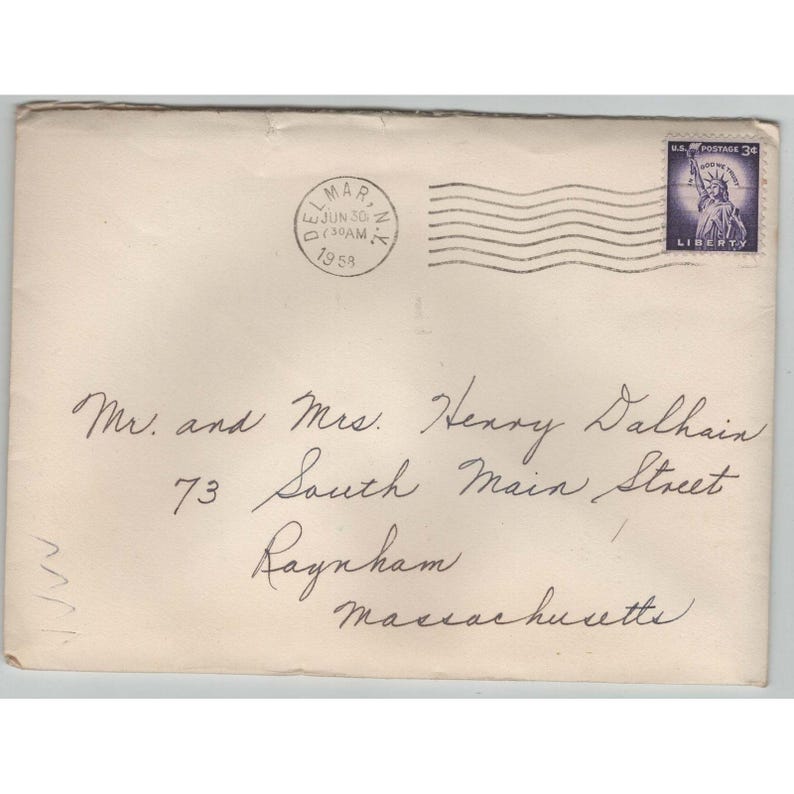 U.S. POSTAGE 3¢
IN GOD WE TRUST
LIBERTY
DELMAR, N.Y.
JUN 30
730AM
1958
Mr. and Mrs. Henry Dalhain
73 South Main Street
Raynham
Massachusetts